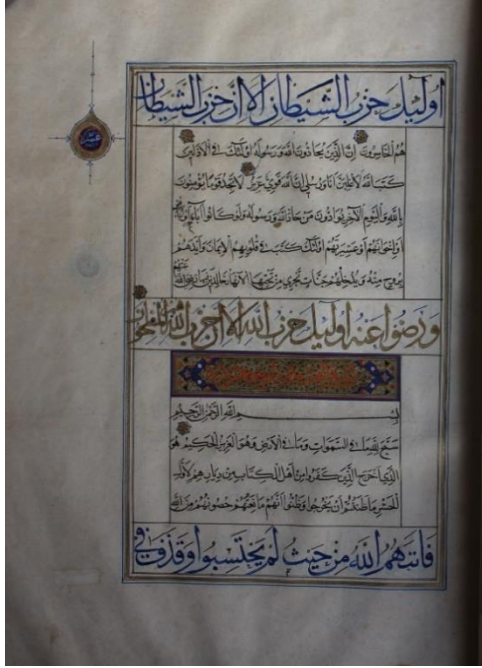 اوليك حزب الشيطان الا ان حزب الشيطان
هم الخاسرون ان الذين يحادون الله ورسوله اولئك في الاذلين
كتب الله لاغلبن انا ورسلي ان الله قوي عزيز لا تجد قوما يؤمنون
بالله واليوم الآخر يوادون من حاد الله ورسوله ولو كانوا آباءهم او ابناءهم
او اخوانهم او عشيرتهم اولئك كتب في قلوبهم الايمان وايدهم
بروح منه ويدخلهم جنات تجري من تحتها الانهار خالدين فيها رضي الله عنهم
ورضوا عنه اوليك حزب الله الا ان حزب الله هم المفلحون
بسم الله الرحمن الرحيم
سبح لله ما في السموات وما في الارض وهو العزيز الحكيم هو
الذي اخرج الذين كفروا من اهل الكتاب من ديارهم لاول
الحشر ما ظننتم ان يخرجوا وظنوا انهم مانعتهم حصونهم من الله
فاتيهم الله من حيث لم يحتسبوا وقذف في